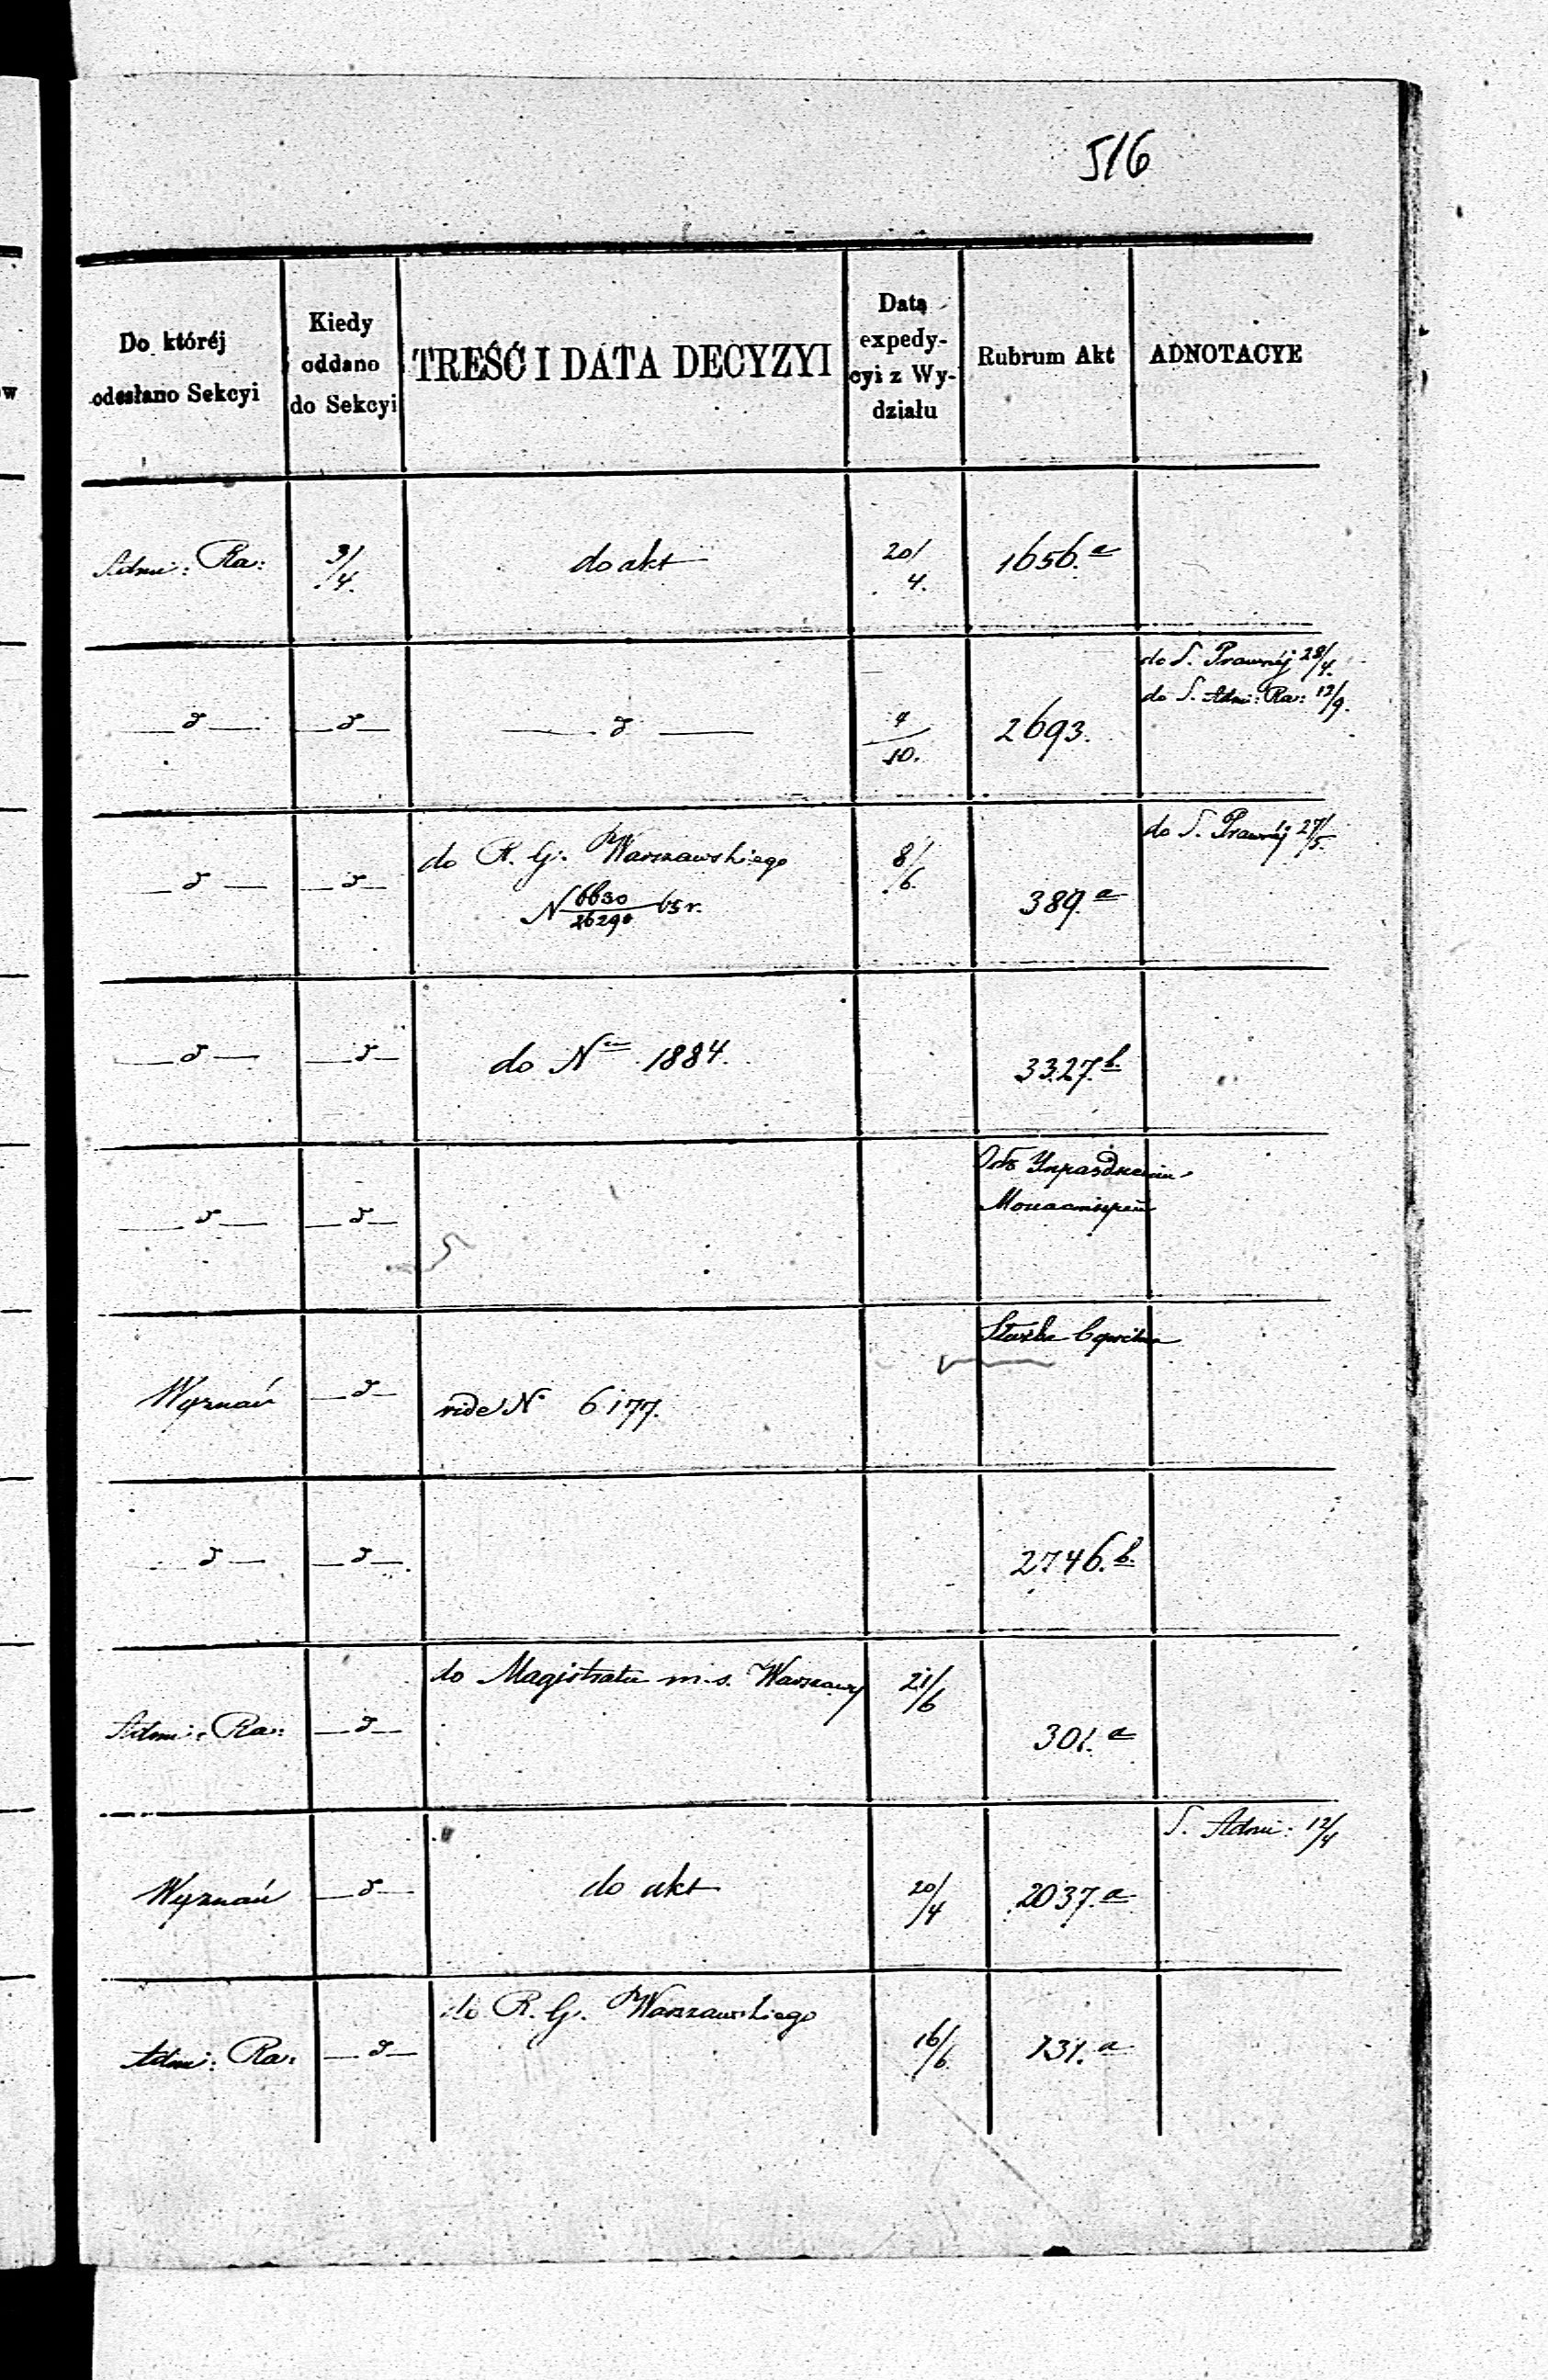 516
Do któréj odesłano Sekcyi
Kiedy oddano do Sekcyi
TREŚĆ I DATA DECYZYI
Data expedycyi z Wydziału
Rubrum Akt
ADNOTACYE
Admi: Ra: 3/4. do akt 20/4. 1656.a
do S. Prawnéj 28/4.
do S. Admi: Ra: 12/9.
—d— —d— —d— 4/10. 2693.
do S. Prawnéj 27/5.
do R. G. Warszawskiego 8/6.
—d— —d— 389.a
N 6630/26290 65 r.
—d— —d— do Nru 1884. 3327.b.
Объ Упраздненіи
Монастырей
—d— —d—
Służba Cywilna
Wyznań —d— vide N° 6177.
—d— —d— 2746.b.
do Magistratu m. s. Warszawy 21/6
Admi: Ra: —d— 301.a
S. Admi: 12/4
Wyznań —d— do akt 20/4 2037.a
do R. G. Warszawskiego
Admi: Ra: —d— 16/6. 731.a